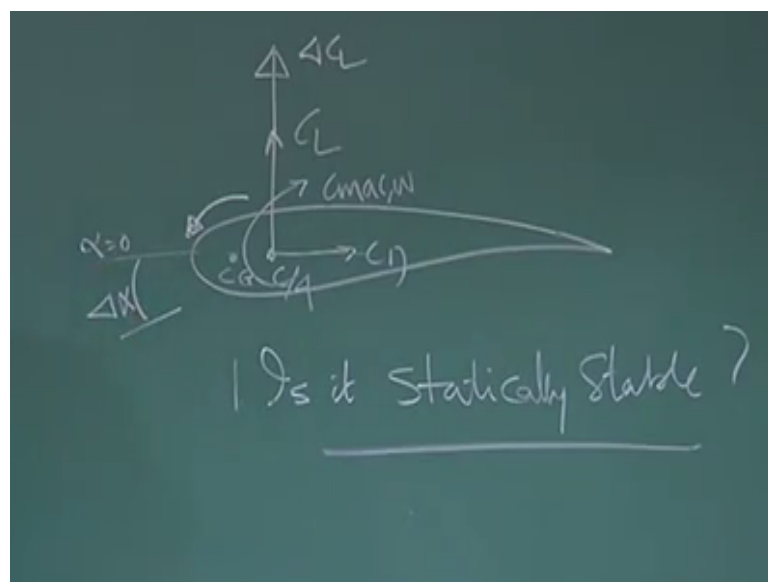 ΔCL
CL
Cmac,w
α=0
CG C/4 CD
Δα
Is it Statically Stable?